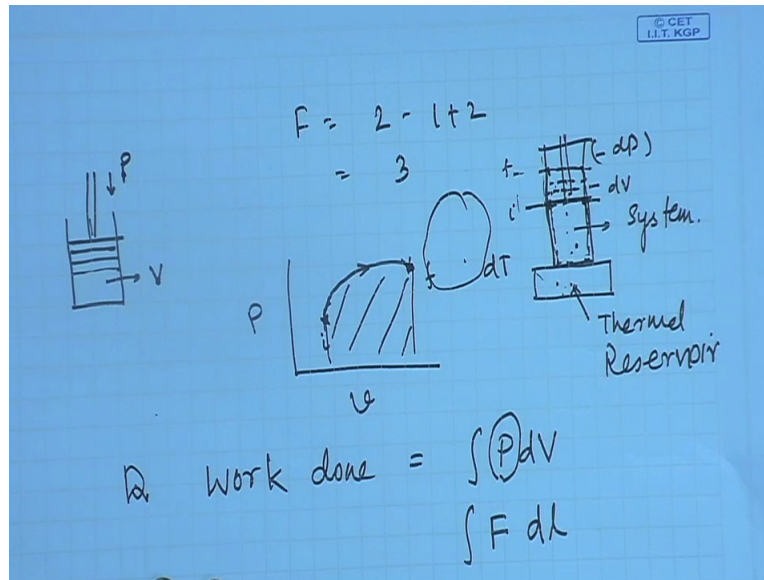 © CET
I.I.T. KGP
F = 2 - 1 + 2
= 3
P
V
f
i
(-dp)
dV
System.
Thermal
Reservoir
P
i
f
dT
v
Work done = ∫ P dV
∫ F dl